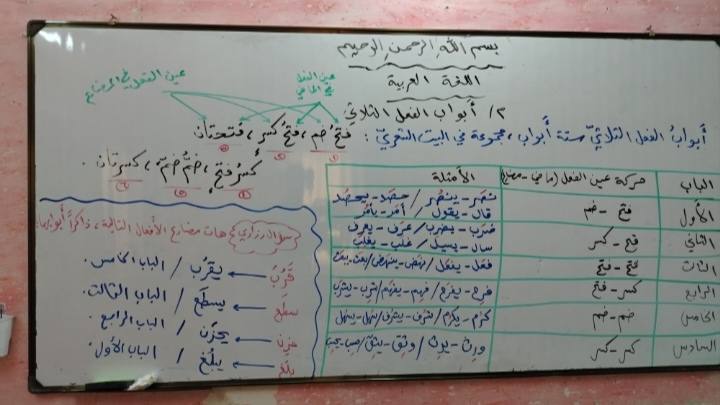 بسم الله الرحمن الرحيم
اللغة العربية
٢/ أبواب الفعل الثلاثي
عين الفعل في الماضي
عين الفعل في المضارع
أبوابُ الفعل الثلاثيّ ستة أبواب، مجموعة في البيت الشعريّ:
فتحُ ضم، فتحُ كسرٍ، فتحتان
كسرُ فتحٍ، ضمُّ ضمٍّ، كسرتان.
الباب حركة عين الفعل (ماضي - مضارع) الأمثلة
الأول فتح - ضم نصَر - ينصُر / حصَد - يحصُد
قال - يقول / أمَر - يأمُر
الثاني فتح - كسر ضرَب - يضرِب / عرَف - يعرِف
سال - يسيل / غلَب - يغلِب
الثالث فتح - فتح فعَل - يفعَل / نهَض - ينهَض /
الرابع كسر - فتح فرِح - يفرَح / فهِم - يفهَم / شرِب - يشرَب
الخامس ضم - ضم كرُم - يكرُم / شرُف - يشرُف /
السادس كسر - كسر ورِث - يرِث / وثِق - يثِق /
هات مضارع الأفعال التالية، ذاكراً أبوابها:
قَرُبَ ← يقرُب / الباب الخامس
سطَع ← يسطَع / الباب الثالث
حزِن ← يحزَن / الباب الرابع
بلَغ ← يبلُغ / الباب الأول.